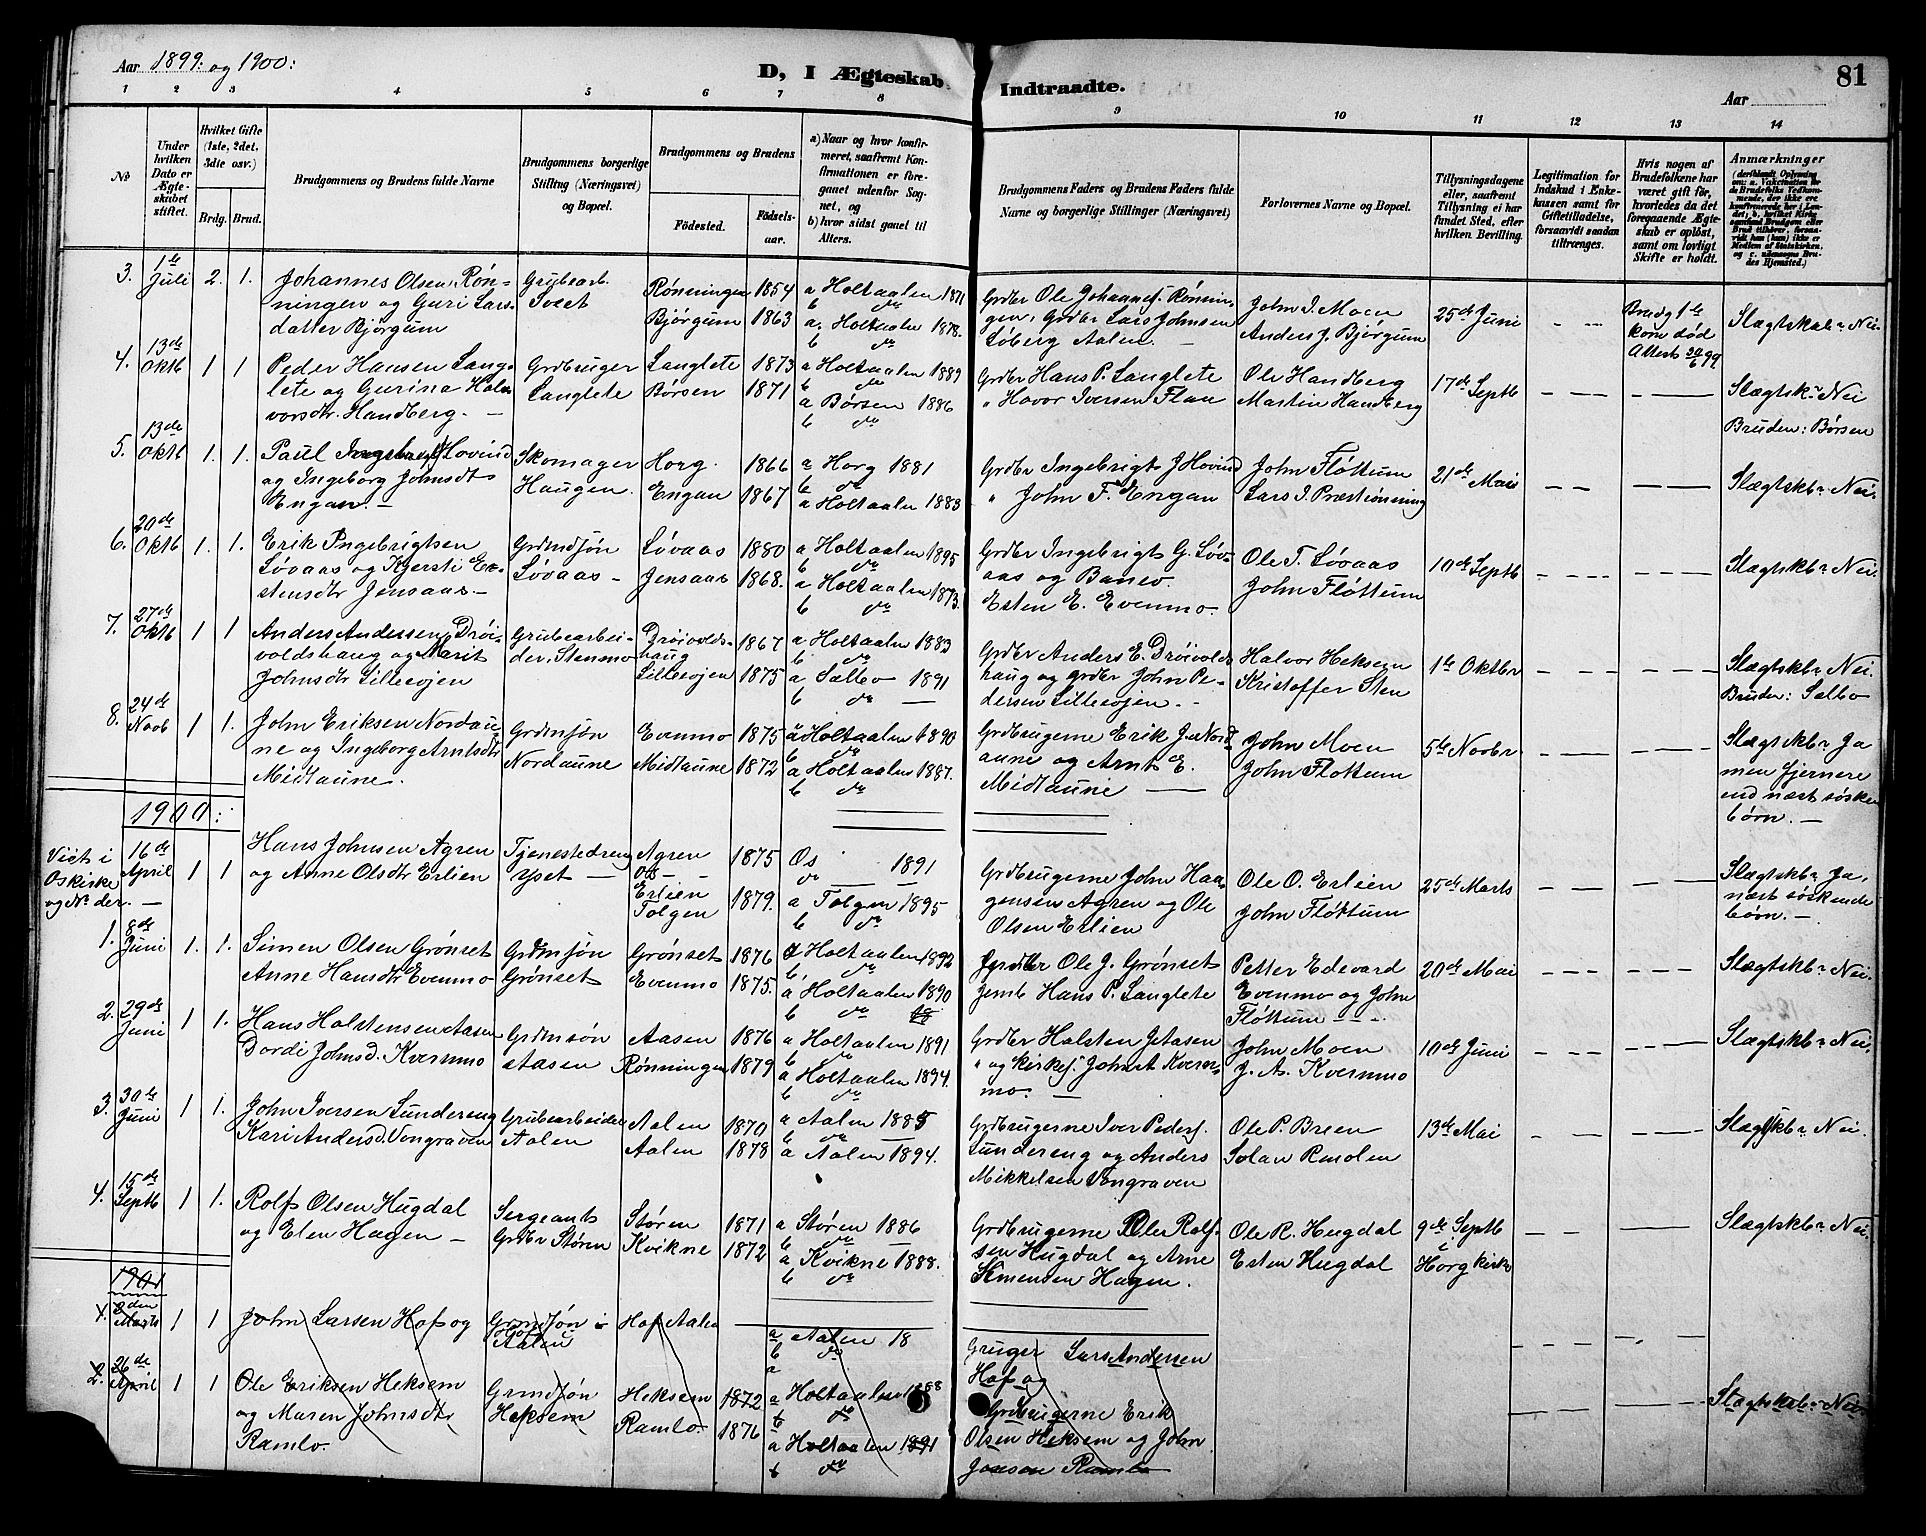 Aar 1899: og 1900:
D, I Ægteskab Indtraadte.
81
Aar
1 2 3 4 5 6 7 8 9 10 11 12 13 14
No
Under hvilken Dato er Ægteskabet stiftet.
Hvilket Gifte (1ste, 2det, 3die osv.)
Brdg. Brud.
Brudgommens og Brudens fulde Navne
Brudgommens borgerlige Stilling (Næringsvei) og Bopæl.
Brudgommens og Brudens
Fødested.
Fødselsaar.
a) Naar og hvor konfirmeret, saafremt Konfirmationen er foregaaet udenfor Sognet, og
b) hvor sidst gaaet til Alters.
Brudgommens Faders og Brudens Faders fulde Navne og borgerlige Stillinger (Næringsvei)
Forlovernes Navne og Bopæl.
Tillysningsdagene eller, saafremt Tillysning ei har fundet Sted, efter hvilken Bevilling.
Legitimation for Indskud i Enkekassen samt for Giftetilladelse, forsaavidt saadan tiltrænges.
Hvis nogen af Brudefolkene har været gift før, hvorledes da det foregaaende Ægteskab er opløst, samt om lovligt Skifte er holdt.
Anmærkninger
3. 1ste Juli 2. 1. Johannes Olsen Rønningen og Guri Larsdatter Bjørgum
Grubearb. Sveet
Rønningen 1854 a Holtaalen 1871 b do
Bjørgum 1863 a. Holtaalen 1878. b do
Grdbr Ole Johannesf. Rønningen, Grdbr Lars Johnsen Løberg Aalen.
John I. Moen
Anders J. Bjørgum
25de Juni
Brudg 1ste kone død Attest 30/6 99
Slægtskab: Nei
4. 13de Oktb 1 1 Peder Hansen Langlete og Gurina Halvorsdtr. Handberg.
Grdbruger Langlete
Langlete 1873 a Holtaalen 1889 b do
Børsen 1871 a Børsen 1886 b do
Grdbr Hans P. Langlete
" Havor Iversen Flaa
Ole Handberg
Martin Handberg
17de Septb
Slægtsk: Nei
Bruden: Børsen
5. 13de Oktb 1. 1. Paul Ingebrigtf Hovind og Ingeborg Johnsdtr Engan.
Skomager Haugen.
Horg. 1866 a Horg 1881 b do
Engan 1867 a Holtaalen 1883
Grdbr Ingebrigt J Hovind
" John F. Engan
John Fløttum
Lars I. Præstrønning
21de Mai
Slægtskb: Nei.
6. 20de Oktb 1. 1. Erik Ingebrigtsen Løvaas og Kjersti Estensdtr Jensaas.
Grdmdsøn Løvaas
Løvaas 1880 a Holtaalen 1895 b do
Jensaas 1868. a Holtaalen 1873. b do
Grdbr Ingebrigt G. Løvaas og Banev. Esten E. Evenmo.
Ole T. Løvaas
John Fløttum
10de Septb
Slægtskb: Nei.
7. 27de Oktb 1 1 Anders Andersen Drøivoldshaug og Marit Johnsdtr Lillevojen
Grubearbeider, Stenmo
Drøivoldshaug 1867 a Holtaalen 1883 b do
Lillevojen 1875 a Selbo 1891 b
Grdbr Anders E. Drøivoldshaug og grdbr John Pedersen Lillevojen.
Halvor Heksem
Kristoffer Sten
1ste Oktbr
Slægtskb: Nei
Bruden: Selbo
8. 24de Novb 1 1. John Eriksen Nordaune og Ingeborg Arntsdtr Midtaune.
Grdmsøn Nordaune
Evenmo 1875 a Holtaalen 1890 b do
Midtaune 1872 a Holtaalen 1887. b do
Grdbrugerne Erik J. Nordaune og Arnt E. Midtaune
John Moen
John Fløttum
5te Novbr
Slægtskb: Ja men fjernere end næst søskenbørn.
1900:
Viet i Os kirke og No der.
16de April 1 1 Hans Johnsen Agren og Anne Olsdtr Erlien
Tjenestedreng ypset
Agren Os 1875 Os 1891 do
Erlien Tolgen 1879. a Tolgen 1895 b do
Grdbrugerne John Haagensen Agren og Ole Olsen Erlien
Ole O. Erlien
John Fløttum
25de Marts
Slægtskb: Ja, næst søskendebørn.
1. 8de Juni 1. 1. Simen Olsen Grønset Anne Hansdtr Evenmo
Grdmsøn Grønset
Grønset 1876 a Holtaalen 1892 b do
Evenmo 1875. a Holtaalen 1890 b do
Grdbr Ole J. Grønset
Hans P. Langlete
Petter Edevard Evenmo og John Fløttum
20de Mai
Slægtskb: Nei.
2. 29de Juni 1 1. Hans Halstensen Aasen Dordi Johnsd. Kvernmo
Grdmsøn Aasen
Aasen 1876 a Holtaalen 1891 b do
Rønningen 1879 a Holtaalen 1894. b do
Grdbr Halsten J. Aasen
" og kirkesj. John A Kvernmo.
John Moen
J. A. Kvernmo
10de Juni
Slægtskb: Nei.
3. 30te Juni 1 1. John Iversen Sundereng Kari Andersd. Vongraven
Grubearbeider Aalen
Aalen 1870 a Aalen 1885 b do
Aalen 1878 a Aalen 1894.
Grdbrugerne Iver Pedersf. Sundereng og Anders Mikkelsen Vongraven
Ole P. Breen
Solan Rmolen
13de Mai
Slægtskb: Nei.
4. 15de Septb 1 1. Rolf Olsen Hugdal og Elen Hagen
Sergeant Grdbr Støren
Støren 1871 a Støren 1886 b do
Kvikne 1872 a Kvikne 1888. b do
Grdbrugerne Ole Rolfsen Hugdal og Arne Simensen Hagen.
Ole R. Hugdal
Esten Hugdal
9de Septb i Horg kirke
Slægtskb: Nei.
1901
1. 8den Marts 1 1 John Larsen Hof og
Grmdsøn i Hof Aalen
Hof Aalen
a Aalen 18 b do a
Gruger Lars Andersen Hof og
2. 26de April 1 1 Ole Eriksen Heksem og Maren Johnsdtr Ramlo.
Grmdsøn Heksem
Heksem 1872 a Holtaalen 1888 b do
Ramlo. 1876 a Holtaalen 1891 b do
Grdbrugerne Erik Olsen Heksem og John Jonsen Ramlo
Slægtskab: Nei